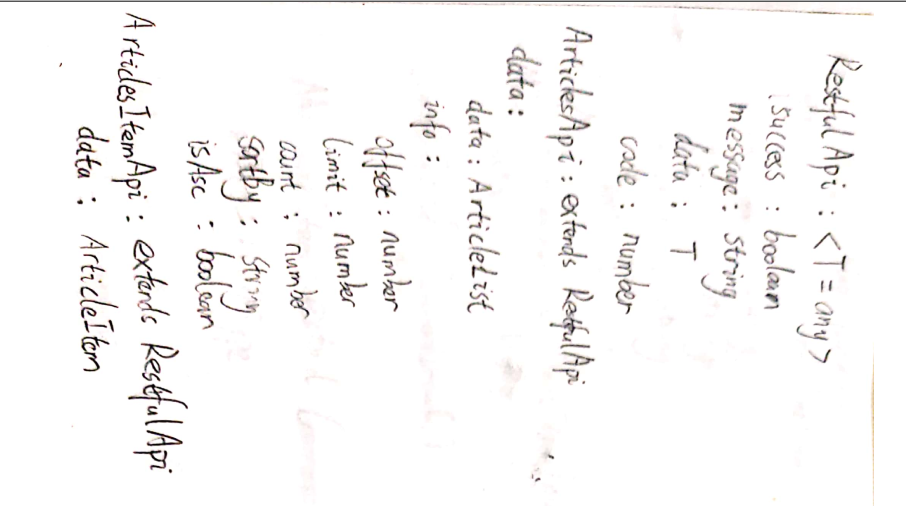 RestfulApi : <T = any>
success : boolean
message : string
data : T
code : number
ArticlesApi : extends RestfulApi
data :
data : ArticleList
info :
offset : number
limit : number
count : number
sortby : string
isAsc : boolean
ArticlesItemApi : extends RestfulApi
data : ArticleItem